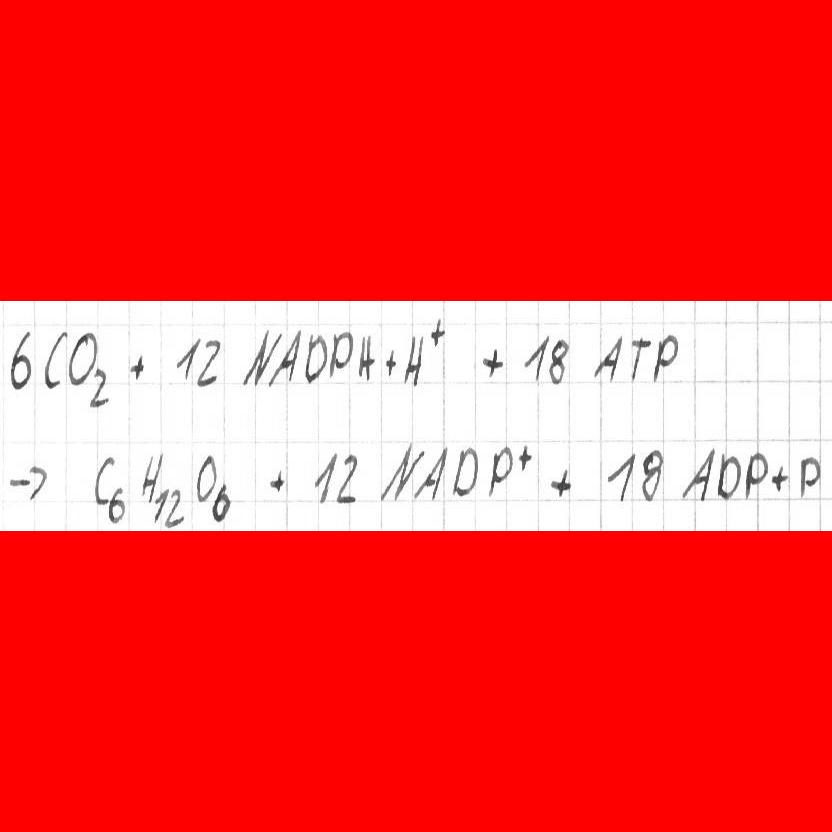 6CO₂ + 12 NADPH+H⁺ + 18 ATP
→ C₆H₁₂O₆ + 12 NADP⁺ + 18 ADP+P